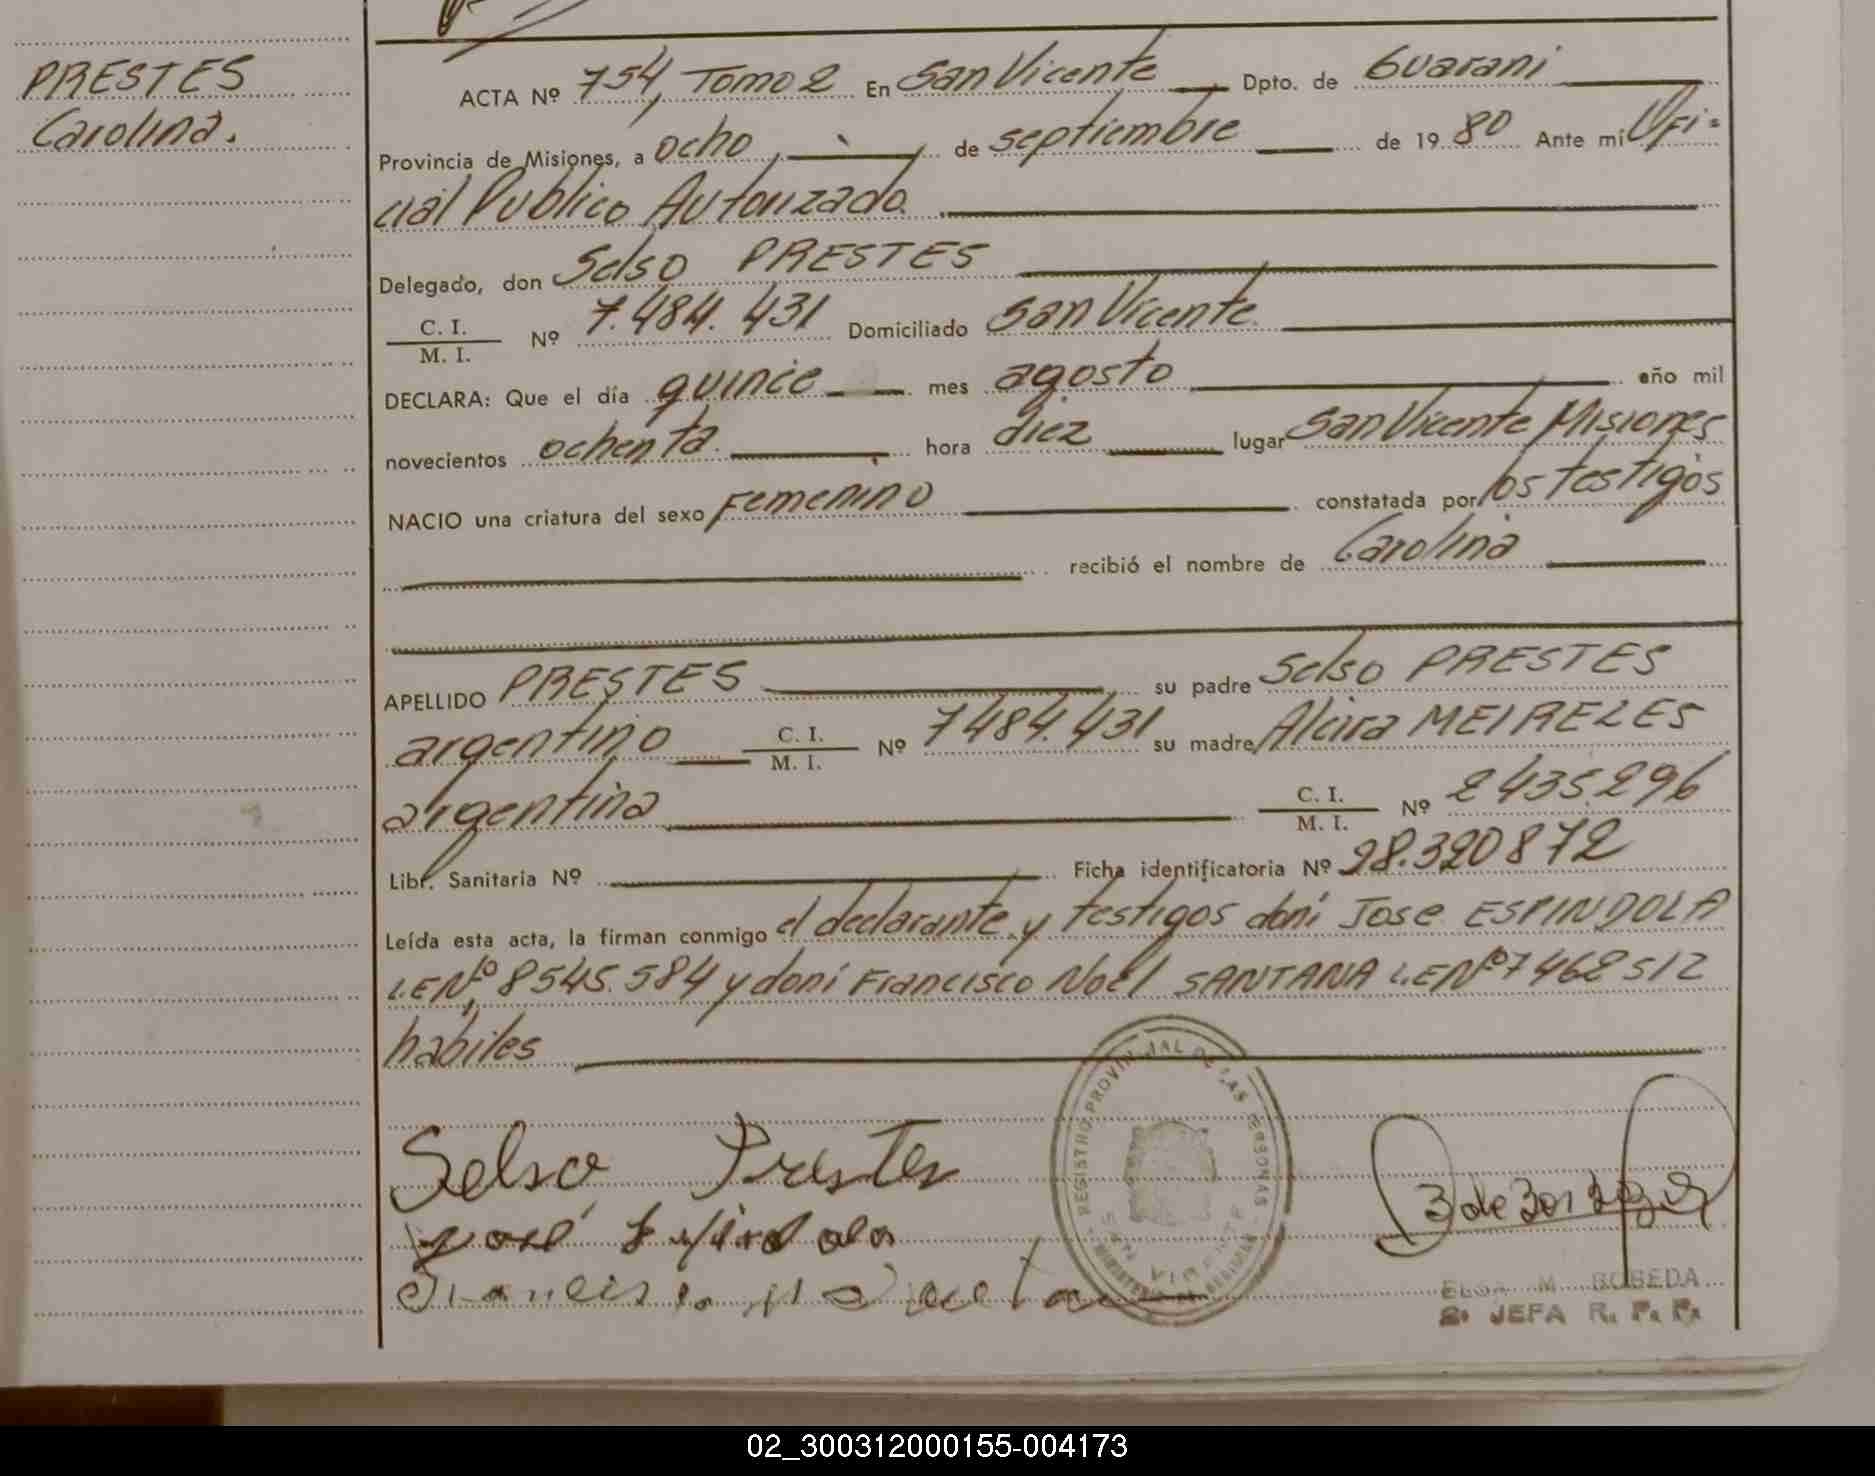 PRESTES
Carolina.
ACTA Nº 754, Tomo 2 En San Vicente Dpto. de Guarani
Provincia de Misiones, a ocho, de septiembre de 19 80 Ante mi Ofi=
cial Publico Autorizado
Delegado, don Selso PRESTES
C. I. / M. I. Nº 7.484.431 Domiciliado San Vicente
DECLARA: Que el día quince mes agosto año mil
novecientos ochenta hora diez lugar San Vicente Misiones
NACIO una criatura del sexo Femenino constatada por los testigos
recibió el nombre de Carolina
APELLIDO PRESTES su padre Selso PRESTES
argentino C. I. / M. I. Nº 7484.431 su madre Alcira MEIRELES
argentina C. I. / M. I. Nº 2435.296
Libr. Sanitaria Nº Ficha identificatoria Nº 28.320872
Leída esta acta, la firman conmigo el declarante y testigos doni Jose ESPINDOLA
L.E.Nº 8545.584 y doni Francisco Noel SANTANA L.E.Nº 7468512
habiles
Selso Prestes
REGISTRO PROVINCIAL DE LAS PERSONAS
SAN VICENTE
ELSA M. BOBEDA
2º JEFA R. P. P.
02_300312000155-004173